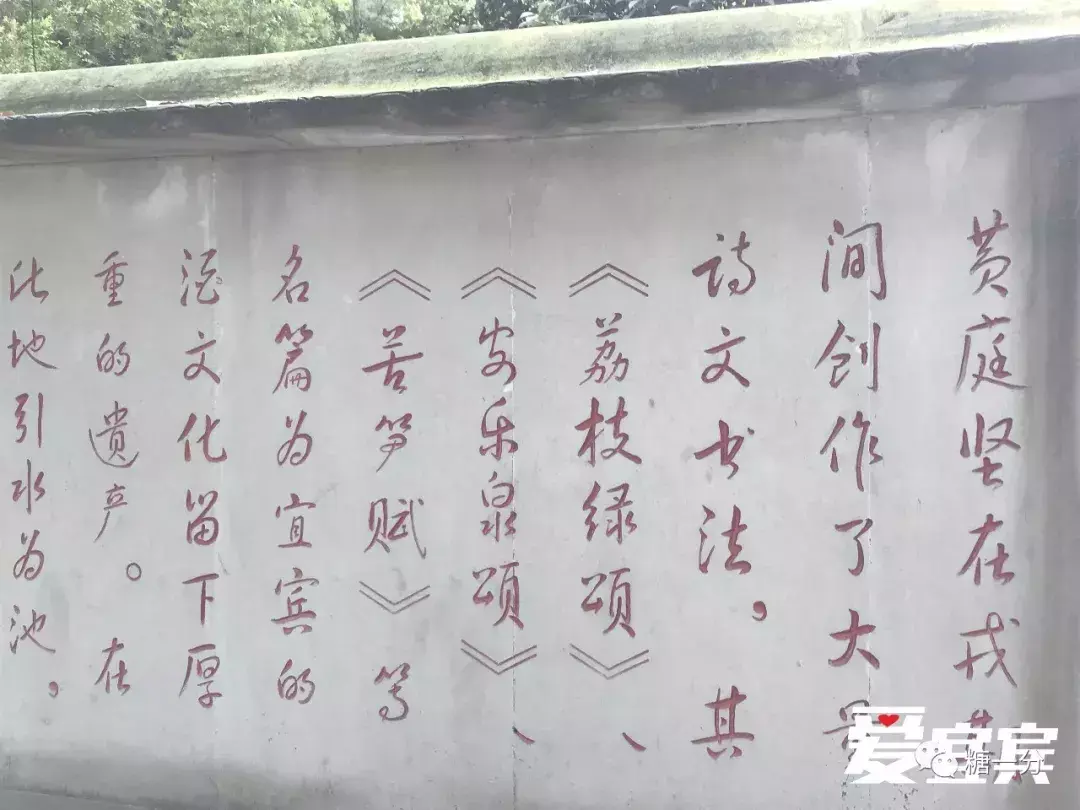 黄庭坚在戎其
间创作了大量
诗文书法。其
《荔枝绿颂》、
《安乐泉颂》、
《苦笋赋》等
名篇为宜宾的
酒文化留下厚
重的遗产。在
此地引水为池，
爱宜宾
糖一分